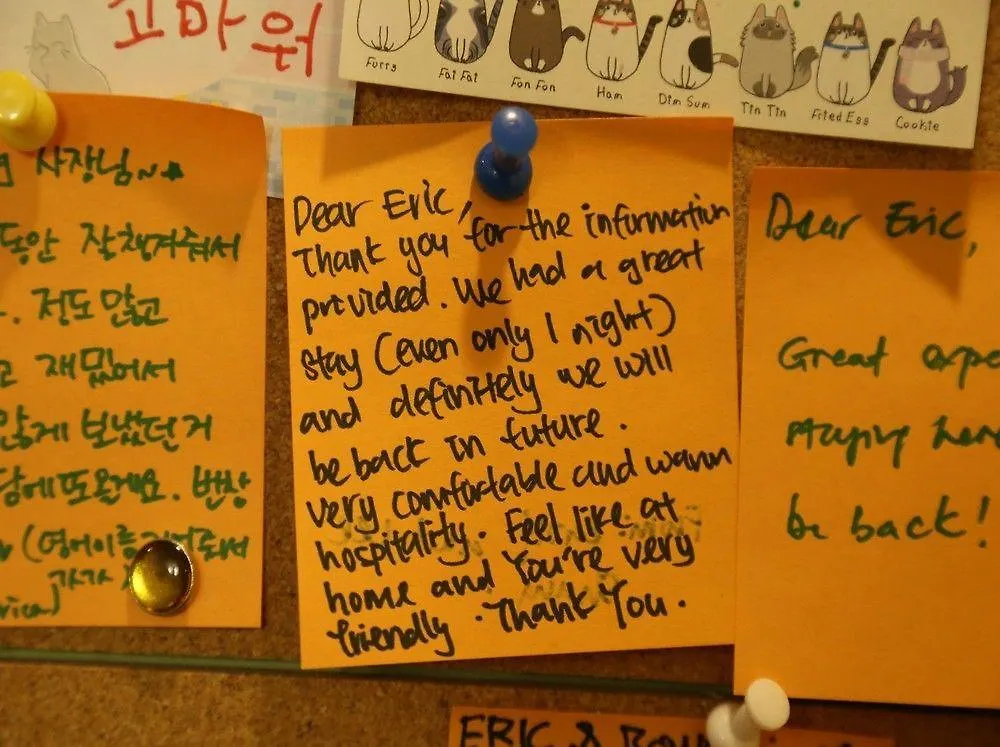 고마워
Furry
Fat Fat
Fon Fon
Ham
Dim Sum
Tin Tin
Fried Egg
Cookie
사장님~★
동안 잘챙겨줘서
. 저도 많고
고 재밌어서
않게 보냈던거
담에 또 올게요. 번창
Dear Eric,
Thank you for the information
provided. We had a great
stay (even only 1 night)
and definitely we will
be back in future.
very comfortable and warm
hospitality. Feel like at
home and You're very
friendly. Thank You.
Dear Eric,
Great
staying here
be back!
ERIC &